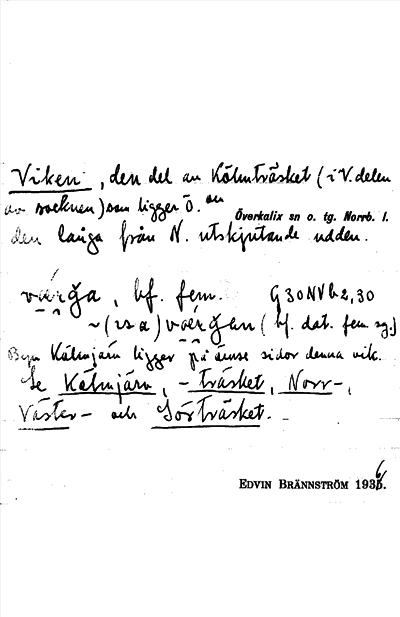 Viken, den del av Kölmträsket (i V. delen
av socknen) som ligger Ö. om
Överkalix sn o. tg. Norrb. l.
den långa från N. utskjutande udden.
bf. fem. G30NVb2,30
(bf. dat. fem sg.)
Byn Kölmjärn ligger på ömse sidor denna vik.
Se Kölmjärn, -träsket, Norr-,
Väster- och Sörträsket.
EDVIN BRÄNNSTRÖM 1936.